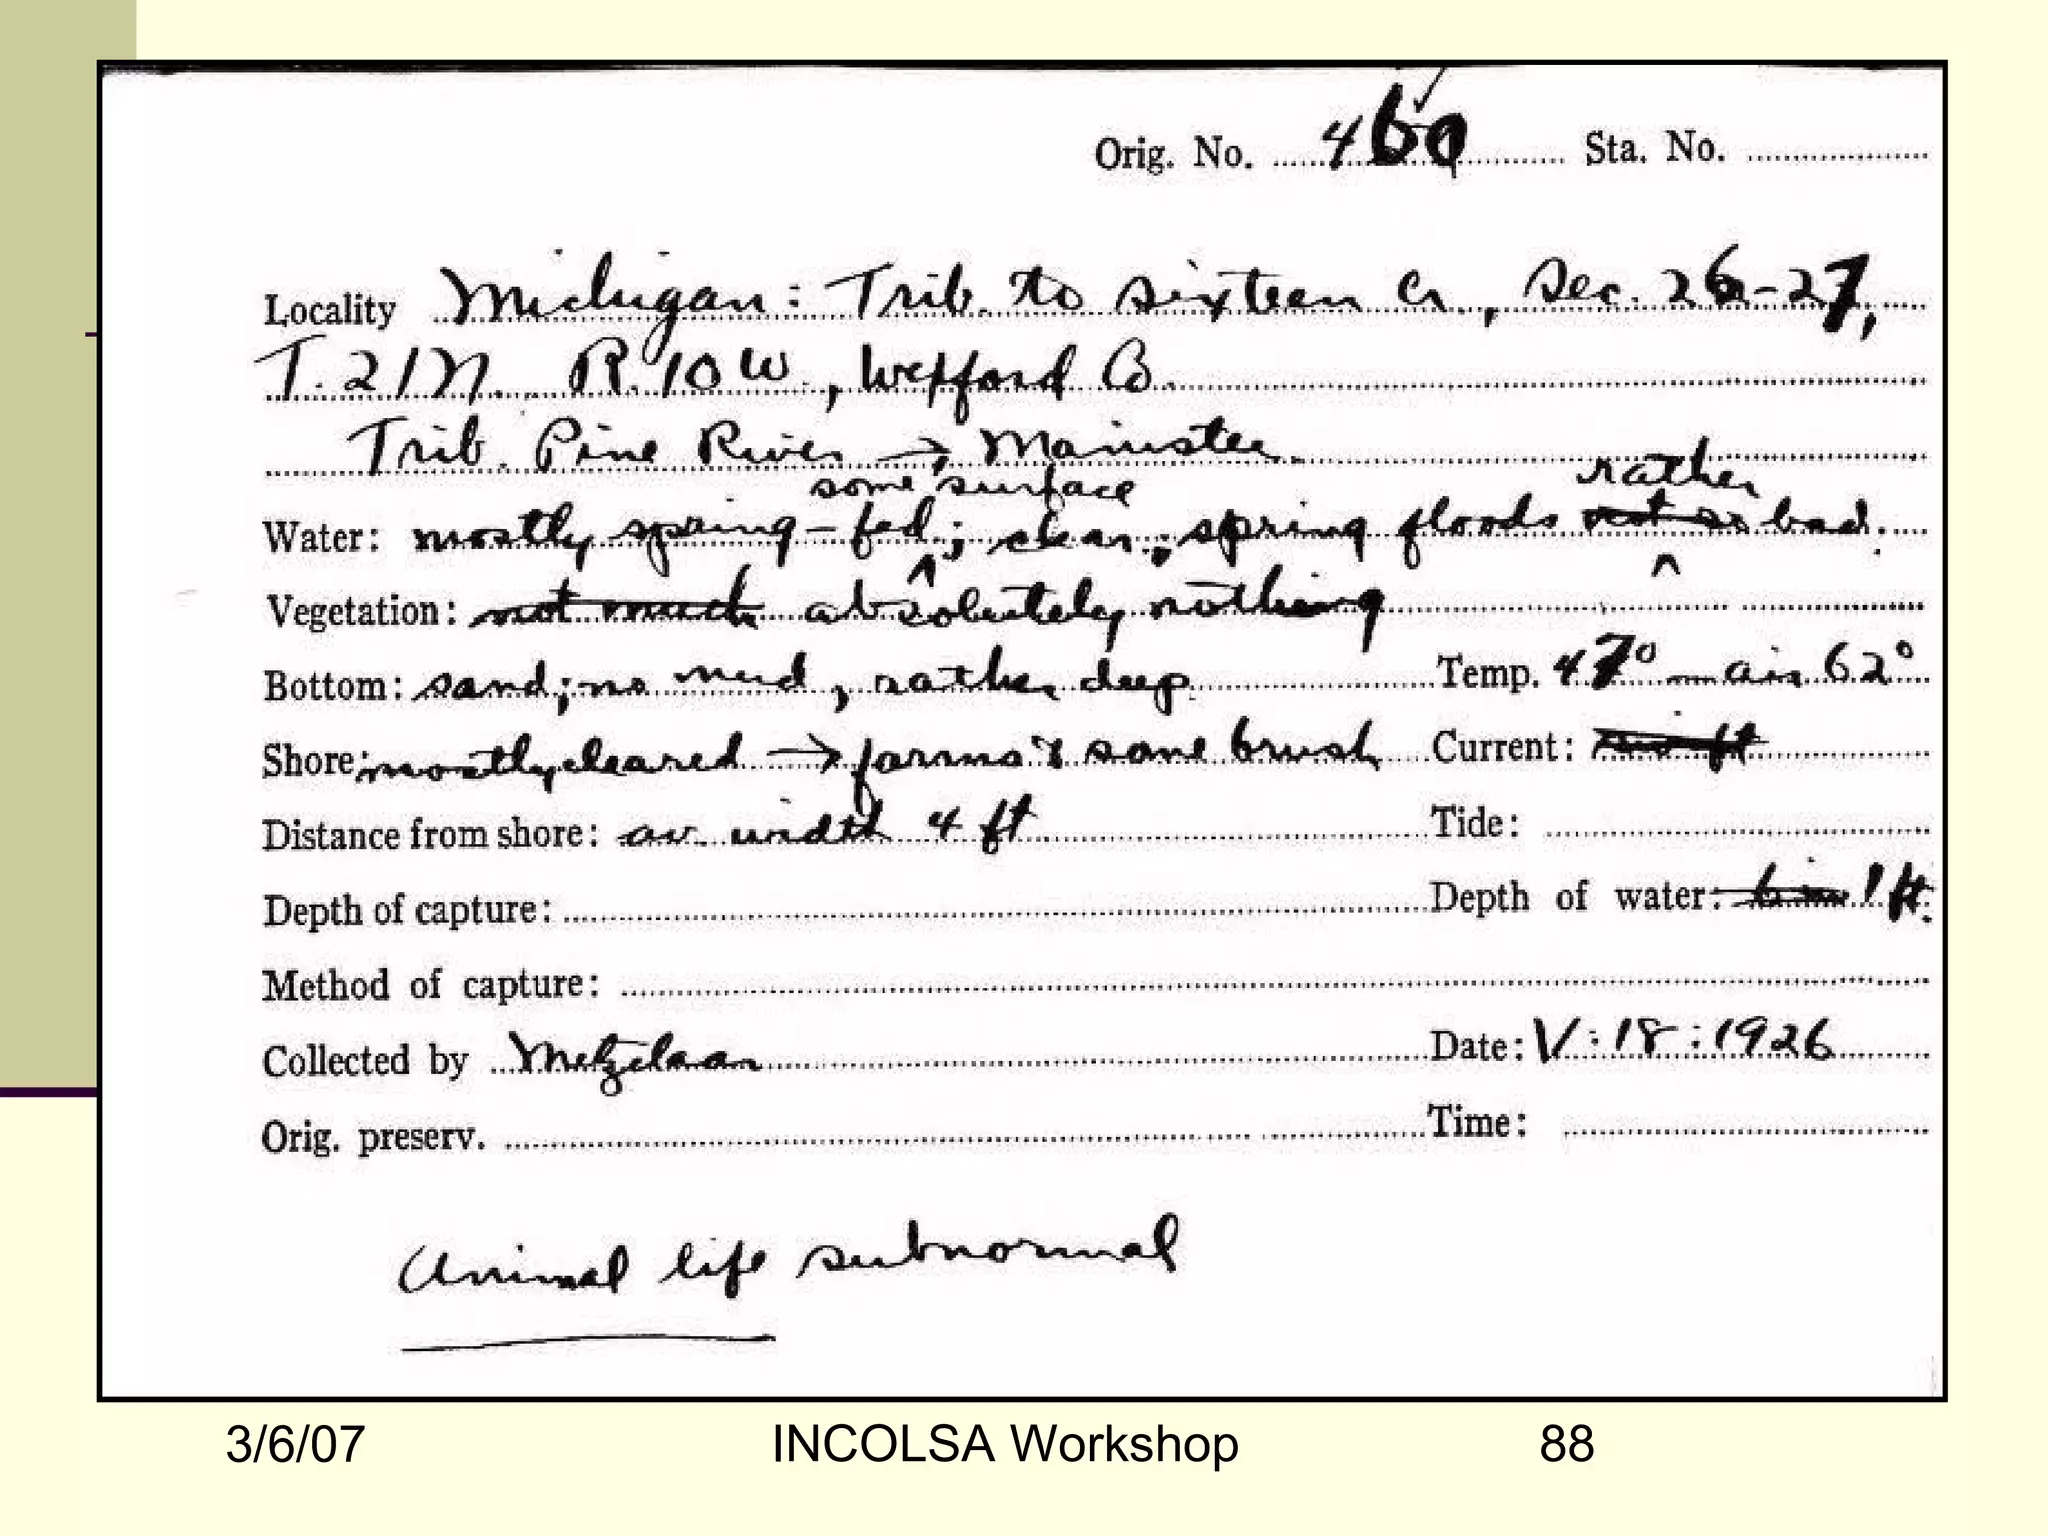 Orig. No. 460 Sta. No.
Locality Michigan: Trib. to Sixteen Cr., Sec. 26-27,
T. 21N. R. 10 W., Wexford Co.
Trib. Pine River → Manistee.
some surface rather
Water: mostly spring-fed ^; clear; spring floods not so ^ bad.
Vegetation: not much absolutely nothing
Bottom: sand; no mud, rather deep. Temp. 47° — air 62°
Shore: mostly cleared → farms & some brush Current: swift
Distance from shore: av. width 4 ft Tide:
Depth of capture: Depth of water: 1 ft.
Method of capture:
Collected by Metzelaar Date: V:18:1926
Orig. preserv. Time:
Animal life subnormal
3/6/07 INCOLSA Workshop 88